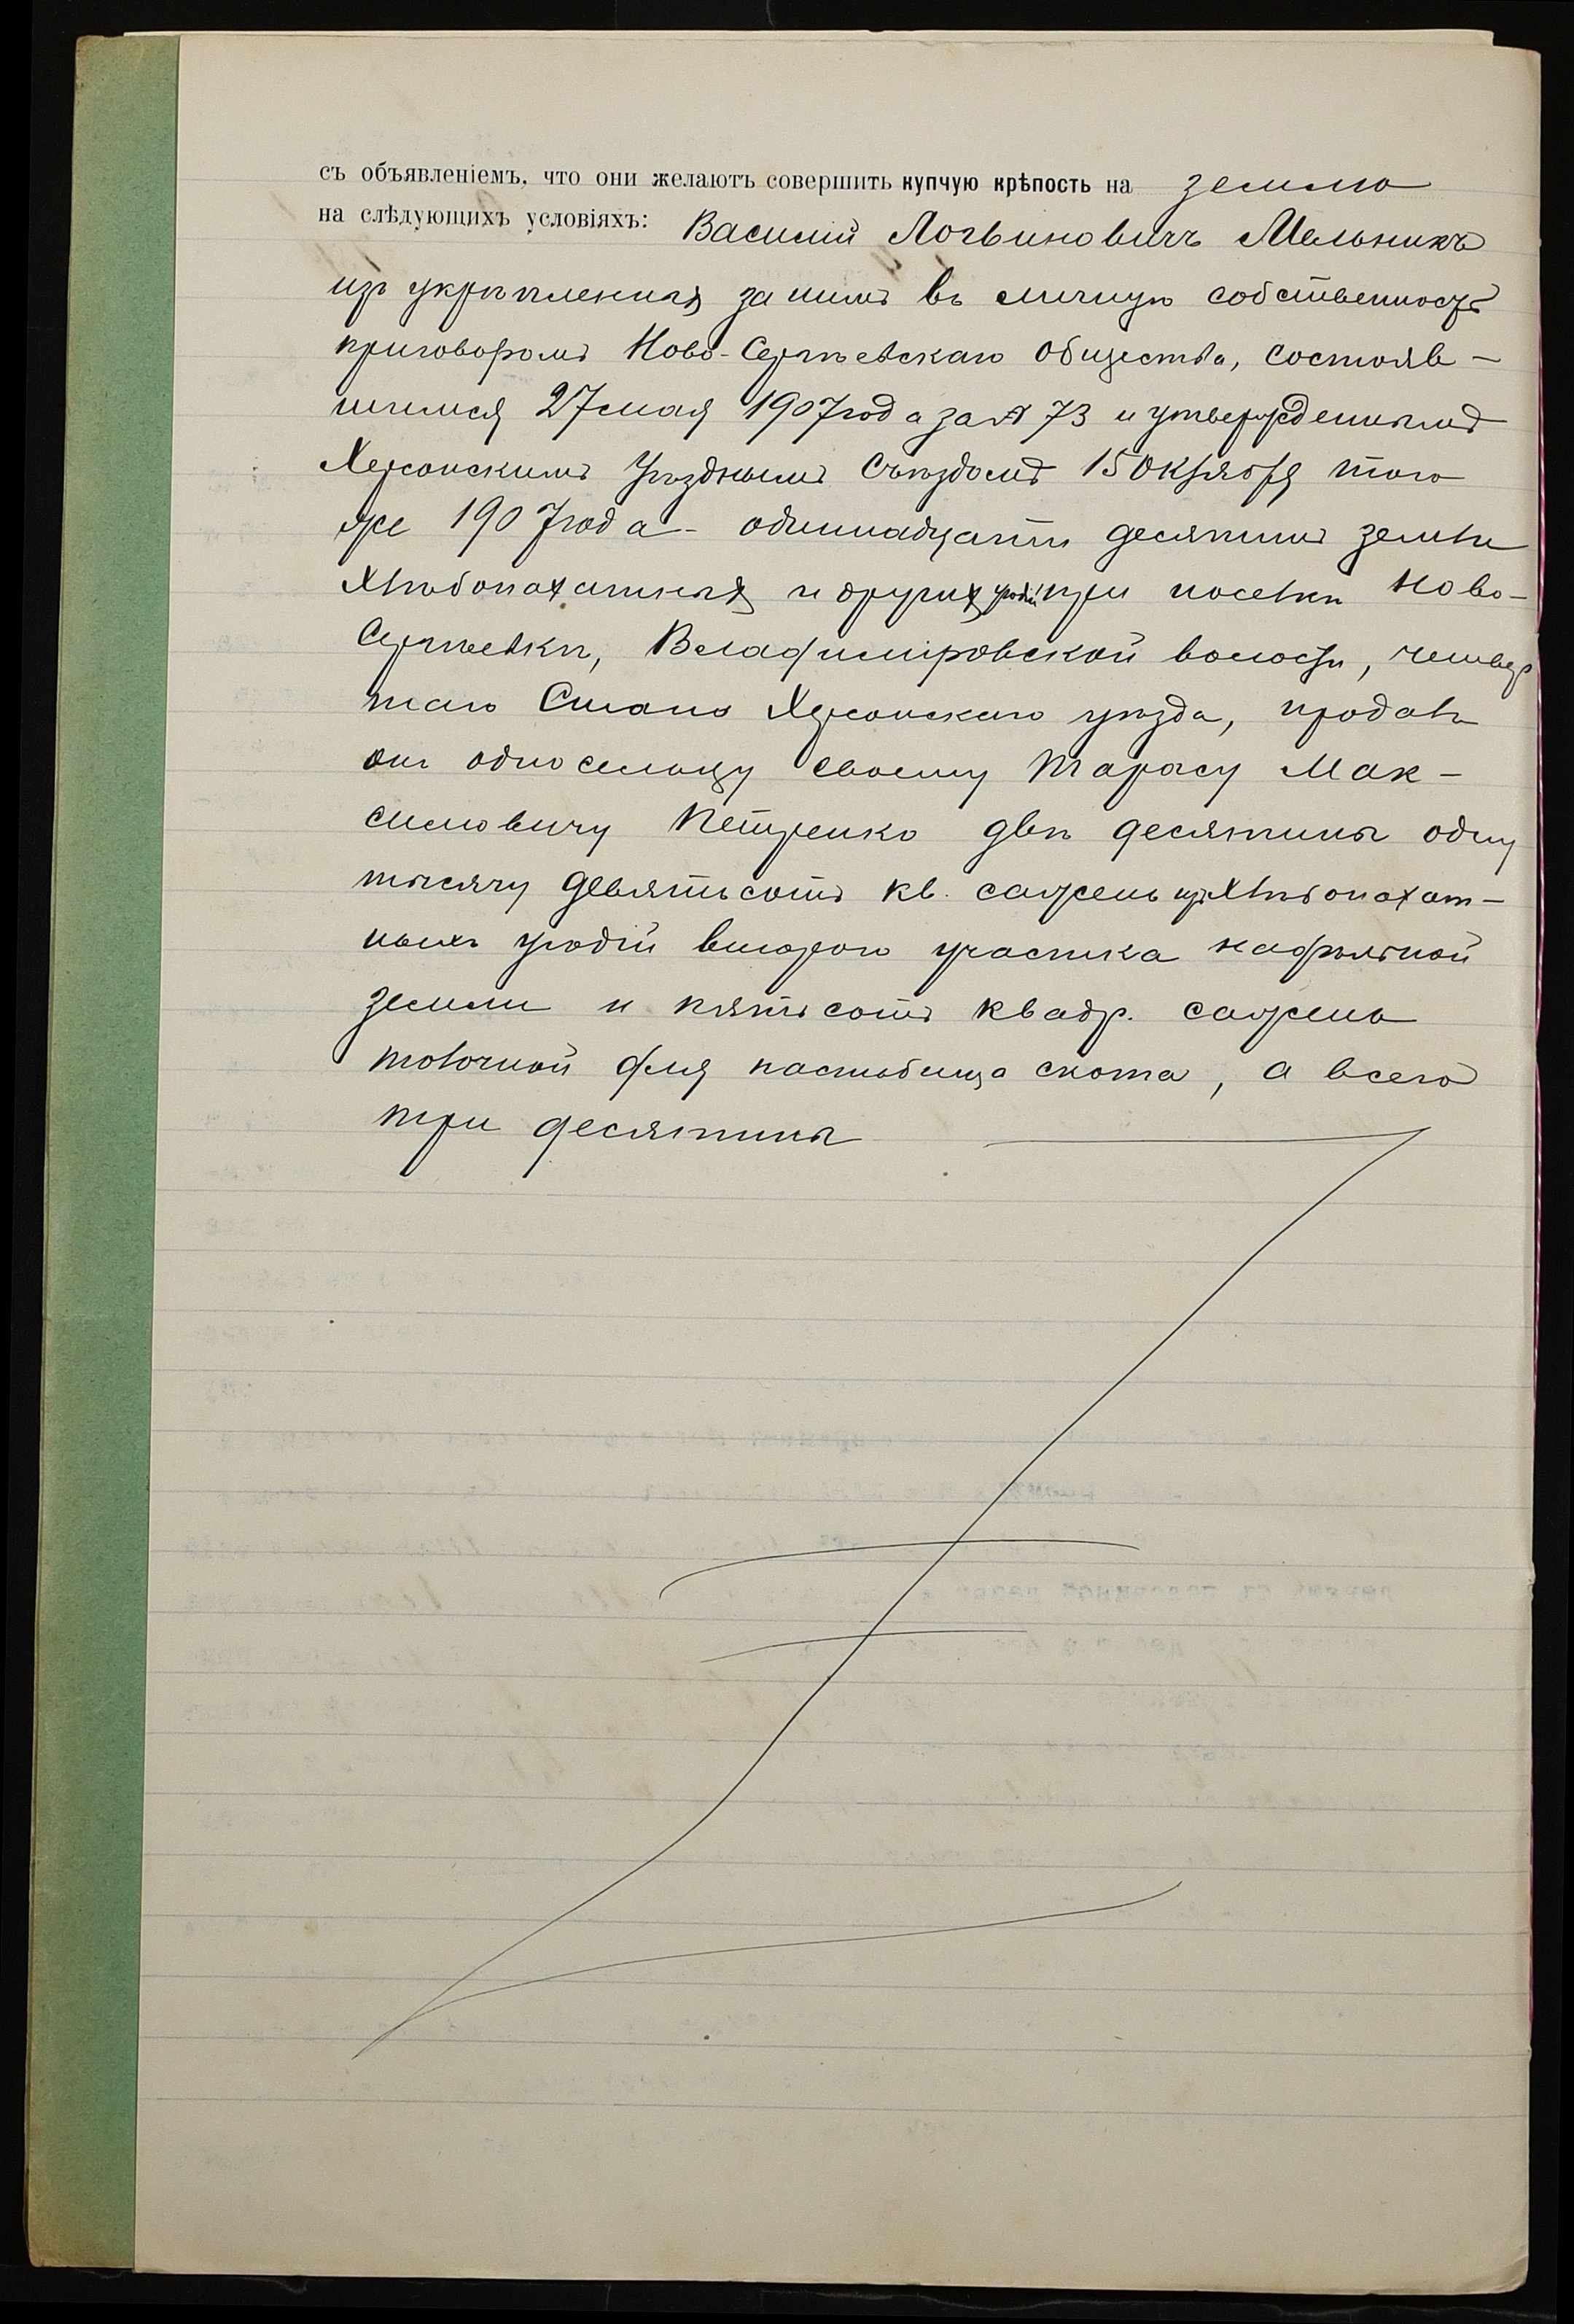 съ объявленіемъ, что они желаютъ совершить купчую крѣпость на землю
на слѣдующихъ условіяхъ: Василій Логвиновичъ Мельникъ
изъ укрѣпленныхъ за нимъ въ личную собственность
приговоромъ Ново-Сергѣевскаго общества, состояв-
шимся 27 мая 1907 года за № 73 и утвержденнымъ
Херсонскимъ Уѣзднымъ Съѣздомъ 15 Октября того
же 1907 года - одиннадцати десятинъ земли
хлѣбопахатныхъ и другихъ угодій при поселкѣ Ново-
Сергѣевкѣ, Владимировской волости, четвер
таго Стана Херсонскаго уѣзда, продалъ
онъ односельцу своему Тарасу Мак-
симовичу Петренко двѣ десятины одну
тысячу девятьсотъ кв. сажень изъ хлѣбопахат-
ныхъ угодій второго участка надѣльной
земли и пятьсотъ квадр. сажень
толочной для пастбища скота, а всего
три десятины